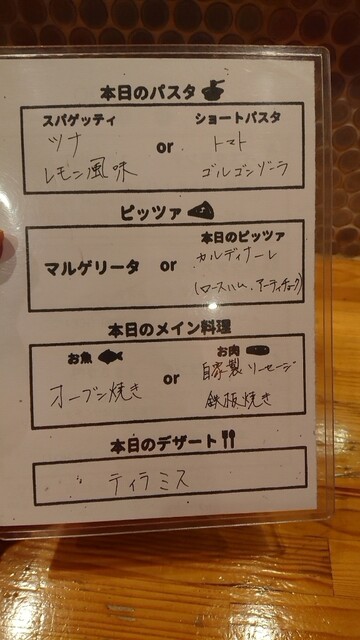 本日のパスタ
スパゲッティ
ツナ
レモン風味
or
ショートパスタ
トマト
ゴルゴンゾーラ
ピッツァ
マルゲリータ
or
本日のピッツァ
カルディナーレ
(ロースハム、アーティチョーク)
本日のメイン料理
お魚
オーブン焼き
or
お肉
自家製ソーセージ
鉄板焼き
本日のデザート
ティラミス